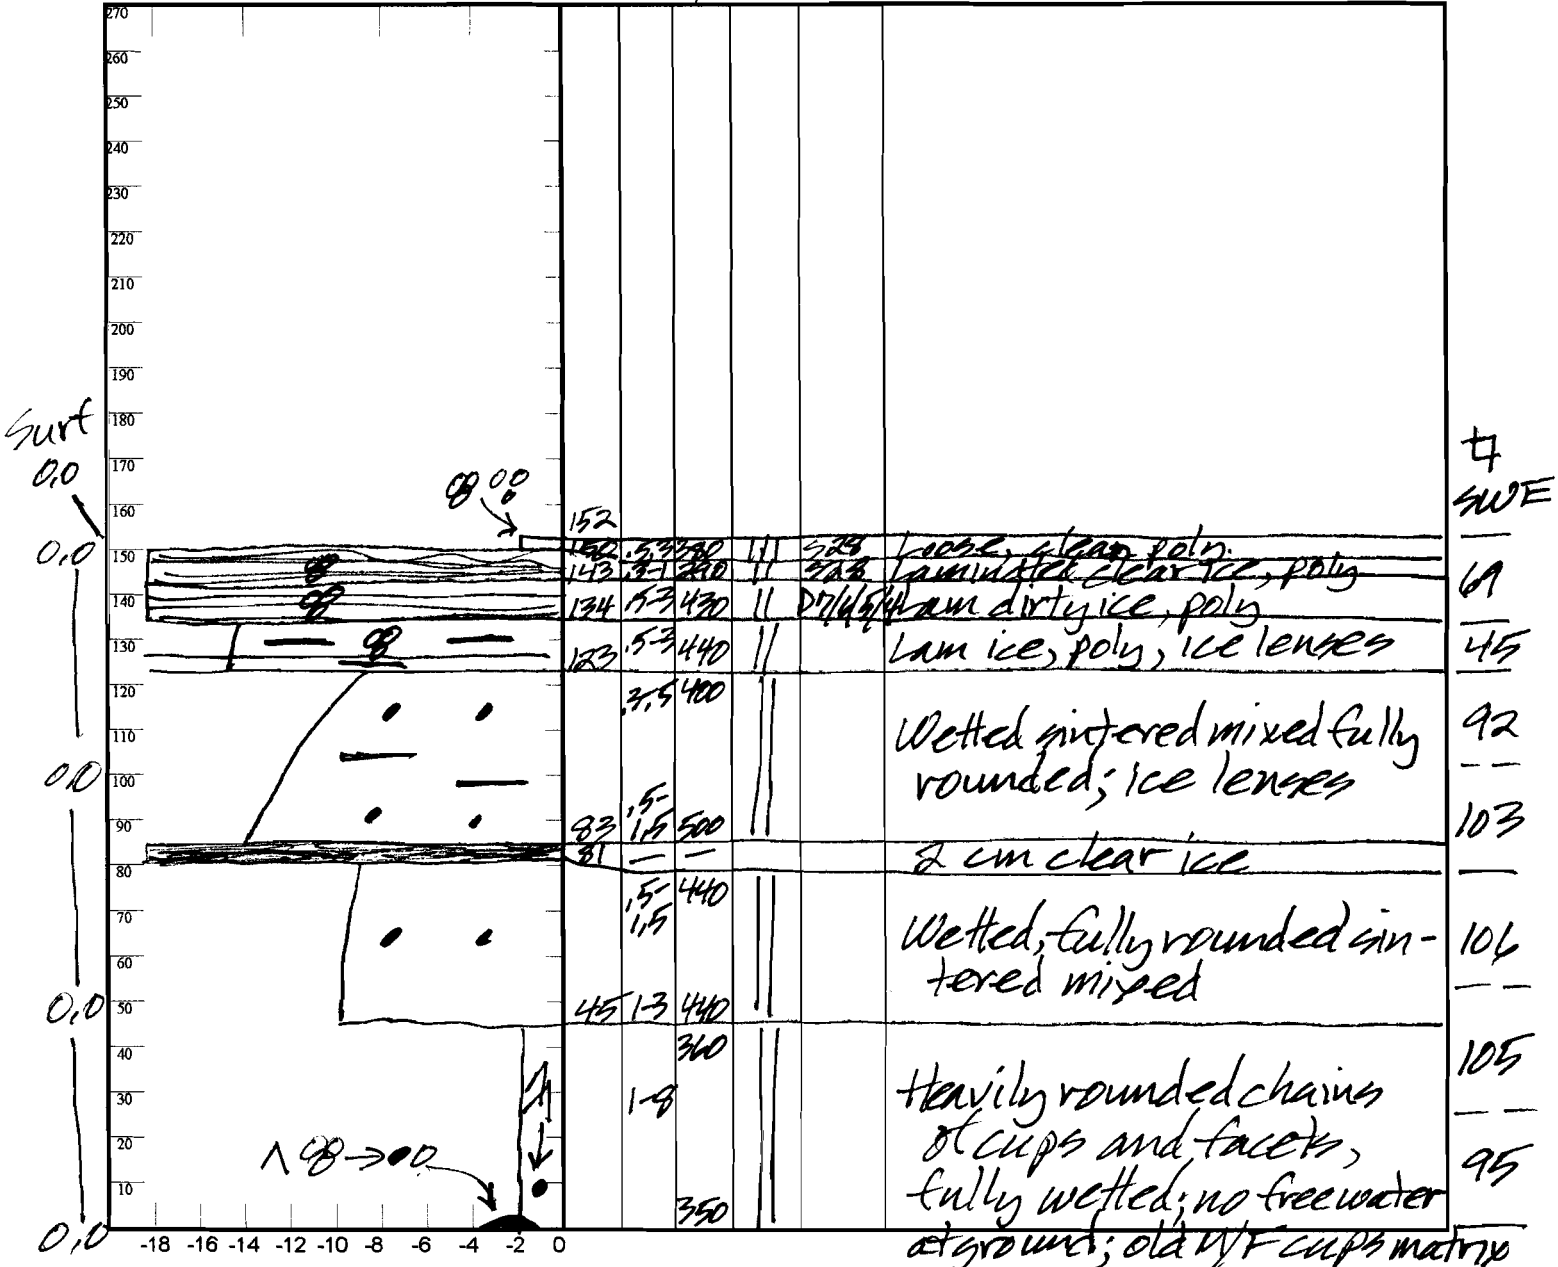 270
260
250
240
230
220
210
200
190
180
170
160
150
140
130
120
110
100
90
80
70
60
50
40
30
20
10
-18 -16 -14 -12 -10 -8 -6 -4 -2 0
Surf
0,0
0,0
0,0
0,0
0,0
SWE
152
150 .5-3 380 528 Loose, clean poly.
143 .3-1 290 528 Laminated clear ice, poly
134 .5-3 430 D7/6/5/4 Lam dirty ice, poly
69
123 .5-3 440 Lam ice, poly, ice lenses 45
400
Wetted sintered mixed fully 92
rounded; ice lenses
,5-
83 1,5 500
103
81 — — 2 cm clear ice
,5- 440
1,5
Wetted, fully rounded sin- 106
tered mixed
45 1-3 440
360
105
1-8 Heavily rounded chains
of cups and facets,
95
fully wetted; no freewater
350
at ground; old W/F cups matrix